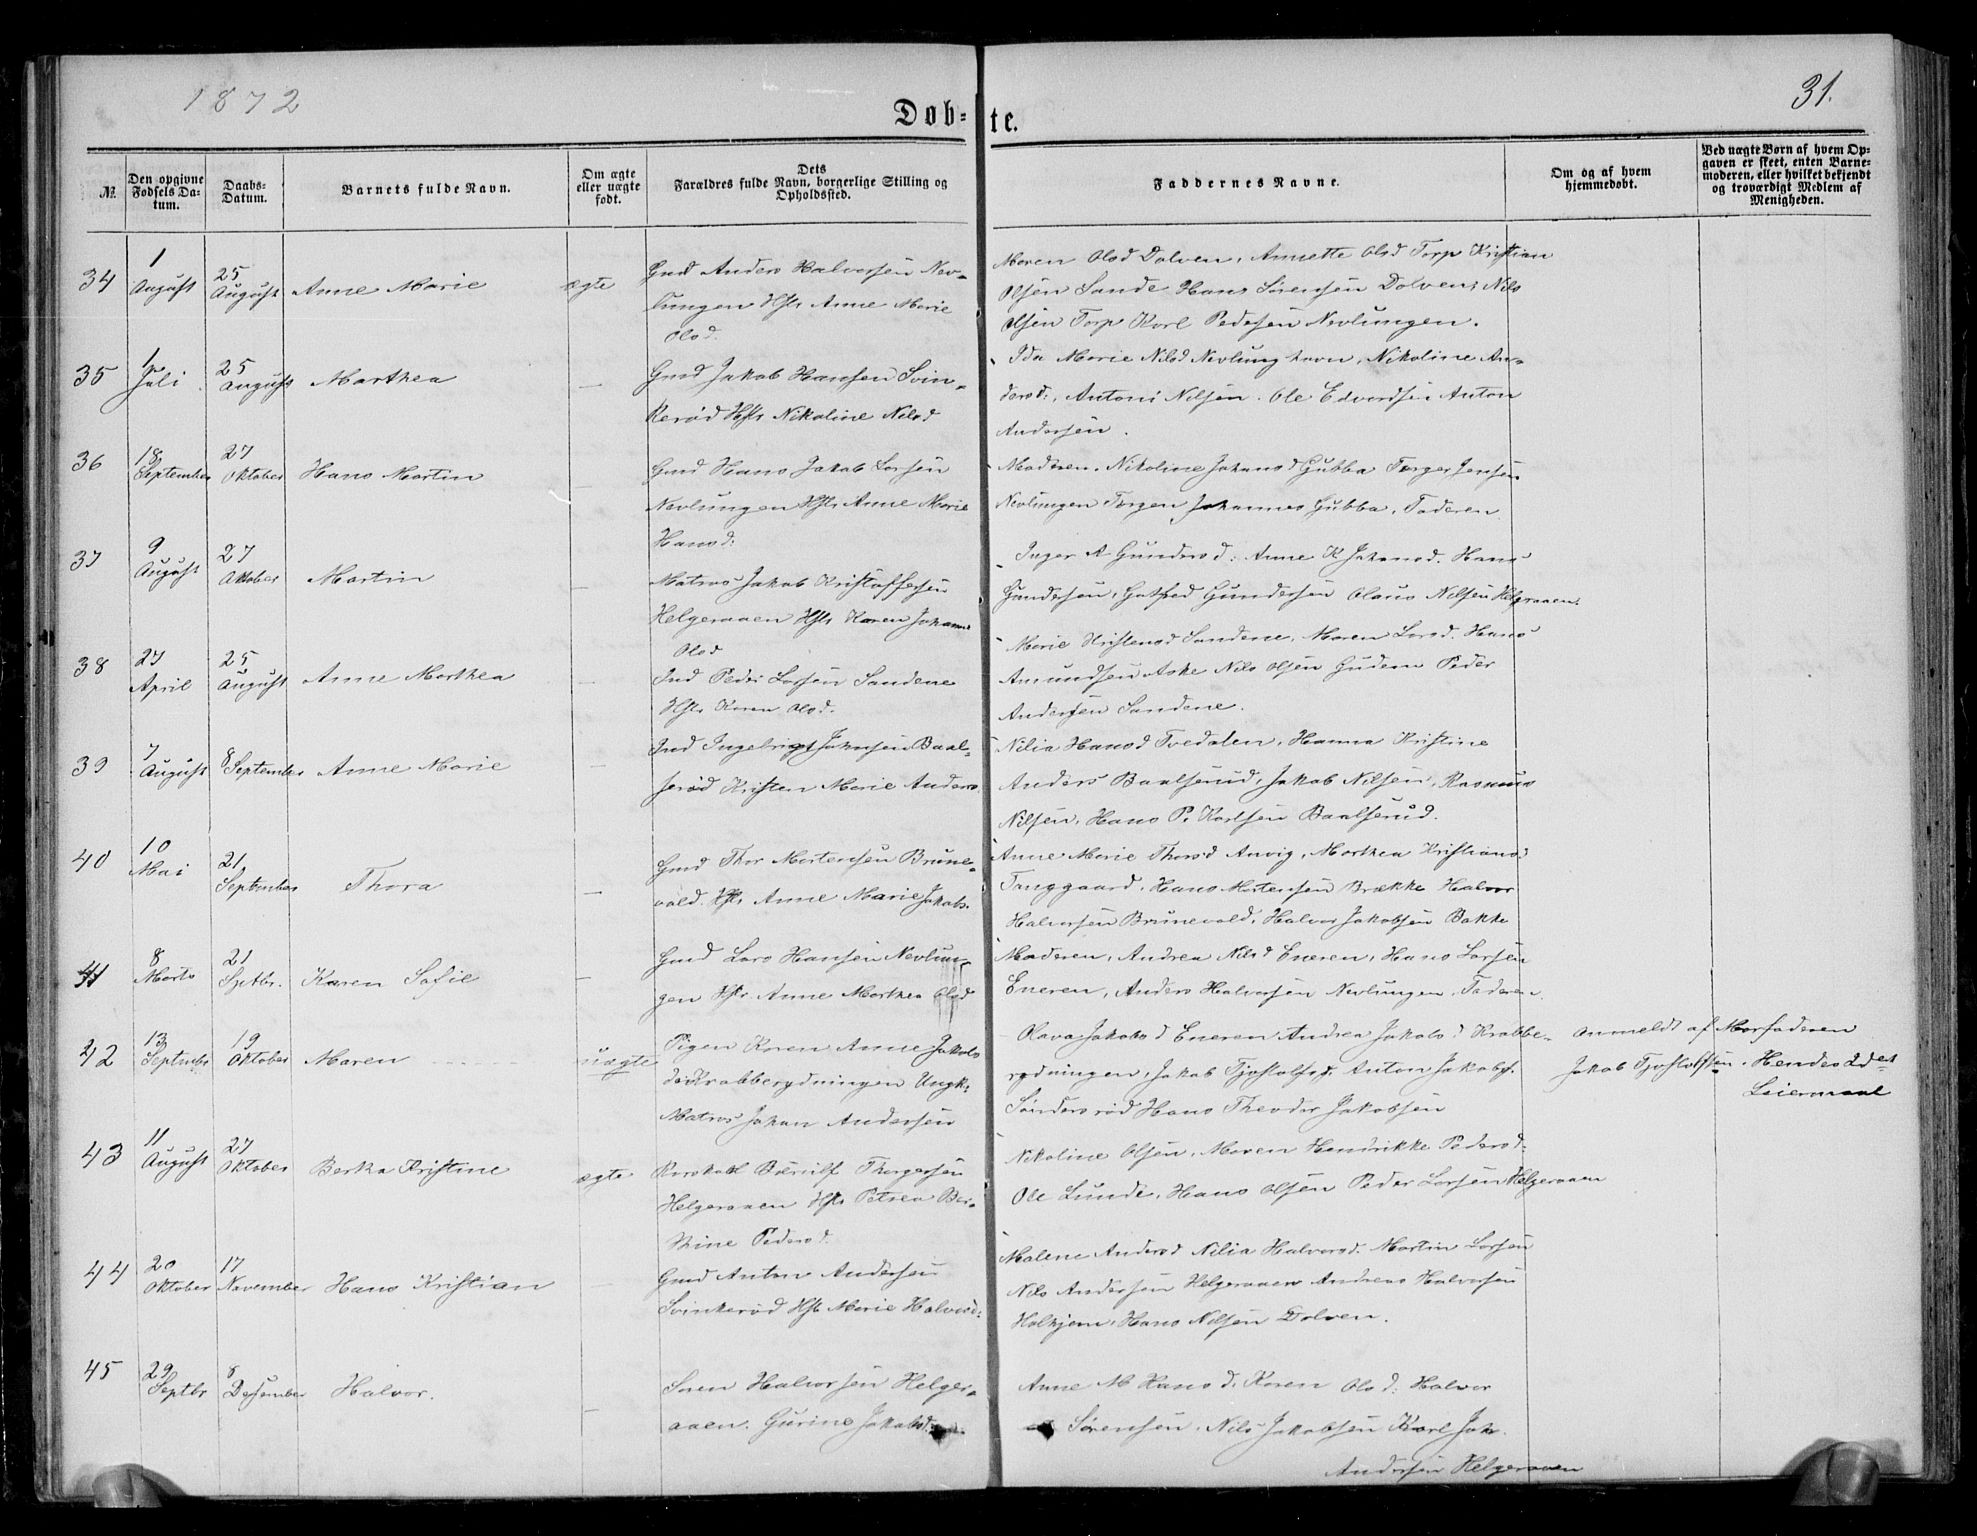 1872
31.
Døb-
te.
No.
Den opgivne Fødsels Da-tum.
Daabs-Datum.
Barnets fulde Navn.
Om ægte eller uægte født.
Dets Forældres fulde Navn, borgerlige Stilling og Opholdssted.
Faddernes Navne.
Om og af hvem hjemmedøbt.
Ved uægte Børn af hvem Op-gaven er skeet, enten Barne-moderen, eller hvilket bekjendt og troværdigt Medlem af Menigheden.
34
1 August
25 August
Anne Marie
ægte
Gmd Anders Halvorsen Nev-
lungen Hst Anne Marie
Olsd.
Maren Olsd Dolven, Annette Olsd Torp Kristian
Olsen Sande Hans Sørensen Dolven, Nils
Olsen Torp Karl Pedersen Nevlungen.
35
Juli
25 August
Marthea
—
Gmd Jakob Hansen Svin-
kerød Hst Nikoline Nilsd
Ida Marie Nilsd Nevlunghavn, Nikoline An-
dersd:, Antoni Nilsen. Ole Edvardsen Anton
Andersen.
36
18 September
27 Oktober
Hans Martin
—
Gmd Hans Jakob Larsen
Nevlungen Hst Anne Marie
Hansd:
Moderen, Nikoline Johansd Gubba Torger Jensen
Nevlungen Torgen Johannes Gubba, Faderen
37
9 August
27 Oktober
Martin
—
Matros Jakob Kristoffersen
Helgeraaen Hst Karen Johanne
Olsd
Inger A Gundersd: Anne K Johansd. Hans
Gundersen, Gotfred Gundersen Olaus Nilsen Helgeraaen.
38
27 April
25 August
Anne Marthea
—
Ind Peder Larsen Sandene
Hst Karen Olsd.
Marie Kristensd Sandene, Maren Larsd. Hans
Amundsen Aske Nils Olsen Gudem Peder
Andersen Sandene.
39
7 August
8 September
Anne Marie
—
Ind Ingebrigt Johnsen Baal-
serød Kristen Marie Anders.
Nilia Hansd Tvedalen, Hanna Kristine
Anders Baalserud, Jakob Nilsen, Rasmus
Nilsen, Hans P. Karlsen Baalserud.
40
10 Mai
21 September
Thora
—
Gmd Thor Mortensen Brune-
vald. Hst Anne Marie Jakobs.
Anne Marie Thorsd Anvig, Marthea Kristians:
Tanggaard, Hans Mortensen Brække Halvor
Halvorsen Brunevald, Halvor Jakobsen Bakke
41
8 Marts
21 Septbr.
Karen Sofie
—
Gmd Lars Hansen Nevlun-
gen Hst Anne Marthea Olsd
Moderen, Andrea Nilsd Eneren, Hans Larsen
Eneren, Anders Halvorsen Nevlungen, Faderen.
42
13 Septmbr
19 Oktober
Maren
uægte
Pigen Karen Anne Jakobs
d. Krabberydningen Ungk:
Matros Johan Andersen
Olava Jakobsd Eneren Andrea Jakobsd Krabbe-
rydningen, Jakob Tjostolfsd, Anton Jakobs.
Søndersrød Hans Theodor Jakobsen
Anmeldt af Morfaderen
Jakob Tjostolfsen. Hendes 2det
Leiermaal
43
11 August
27 Oktober
Berka Kristine
ægte
Thorgersen
Helgeraaen Hst Petrea Ber-
thine Pedersd.
Nikoline Olsen, Maren Hendrikke Pedersd:
Ole Lunde, Hans Olsen Peder Larsen Helgeraaen
44
20 Oktober
17 November
Hans Kristian
Gmd Anton Andersen
Svinkerød Hst Marie Halvorsd:
Malene Andersd Nilia Halvorsd. Martin Larsen
Nils Andersen Helgeraaen Andreas Halvorsen
Halkjem, Hans Nilsen Dolven.
45
29 Septbr
8 Desember
Halvor.
—
Søren Halvorsen Helger-
aaen. Gurine Jakobsd.
Anne M Hansd. Karen Olsd: Halvor
Sørensen, Nils Jakobsen Karl Joh.
Andersen Helgeraaen